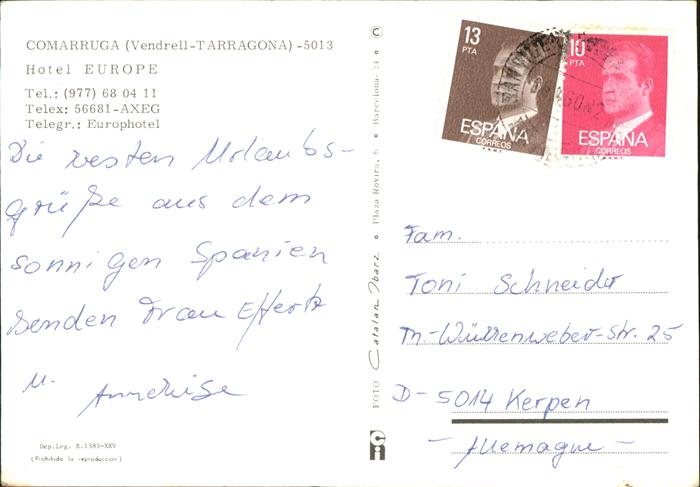 COMARRUGA (Vendrell-TARRAGONA) -5013
Hotel EUROPE
Tel.: (977) 68 04 11
Telex: 56681-AXEG
Telegr.: Europhotel
Die besten Urlaubs-
grüße aus dem
sonnigen Spanien
senden Frau Effertz
u. Anneliese
Dep.Leg. B.1385-XXV
(Prohibida la reproducción)
FOTO Catalan Ibarz • Plaza Rovira, 6 • Barcelona-24 • C
13
PTA
ESPAÑA
CORREOS
F.N.M.T.
10
PTA
ESPAÑA
CORREOS
F.N.M.T.
Fam.
Toni Schneider
Th.-Wüllenweber-Str. 25
D-5014 Kerpen
-Allemagne-